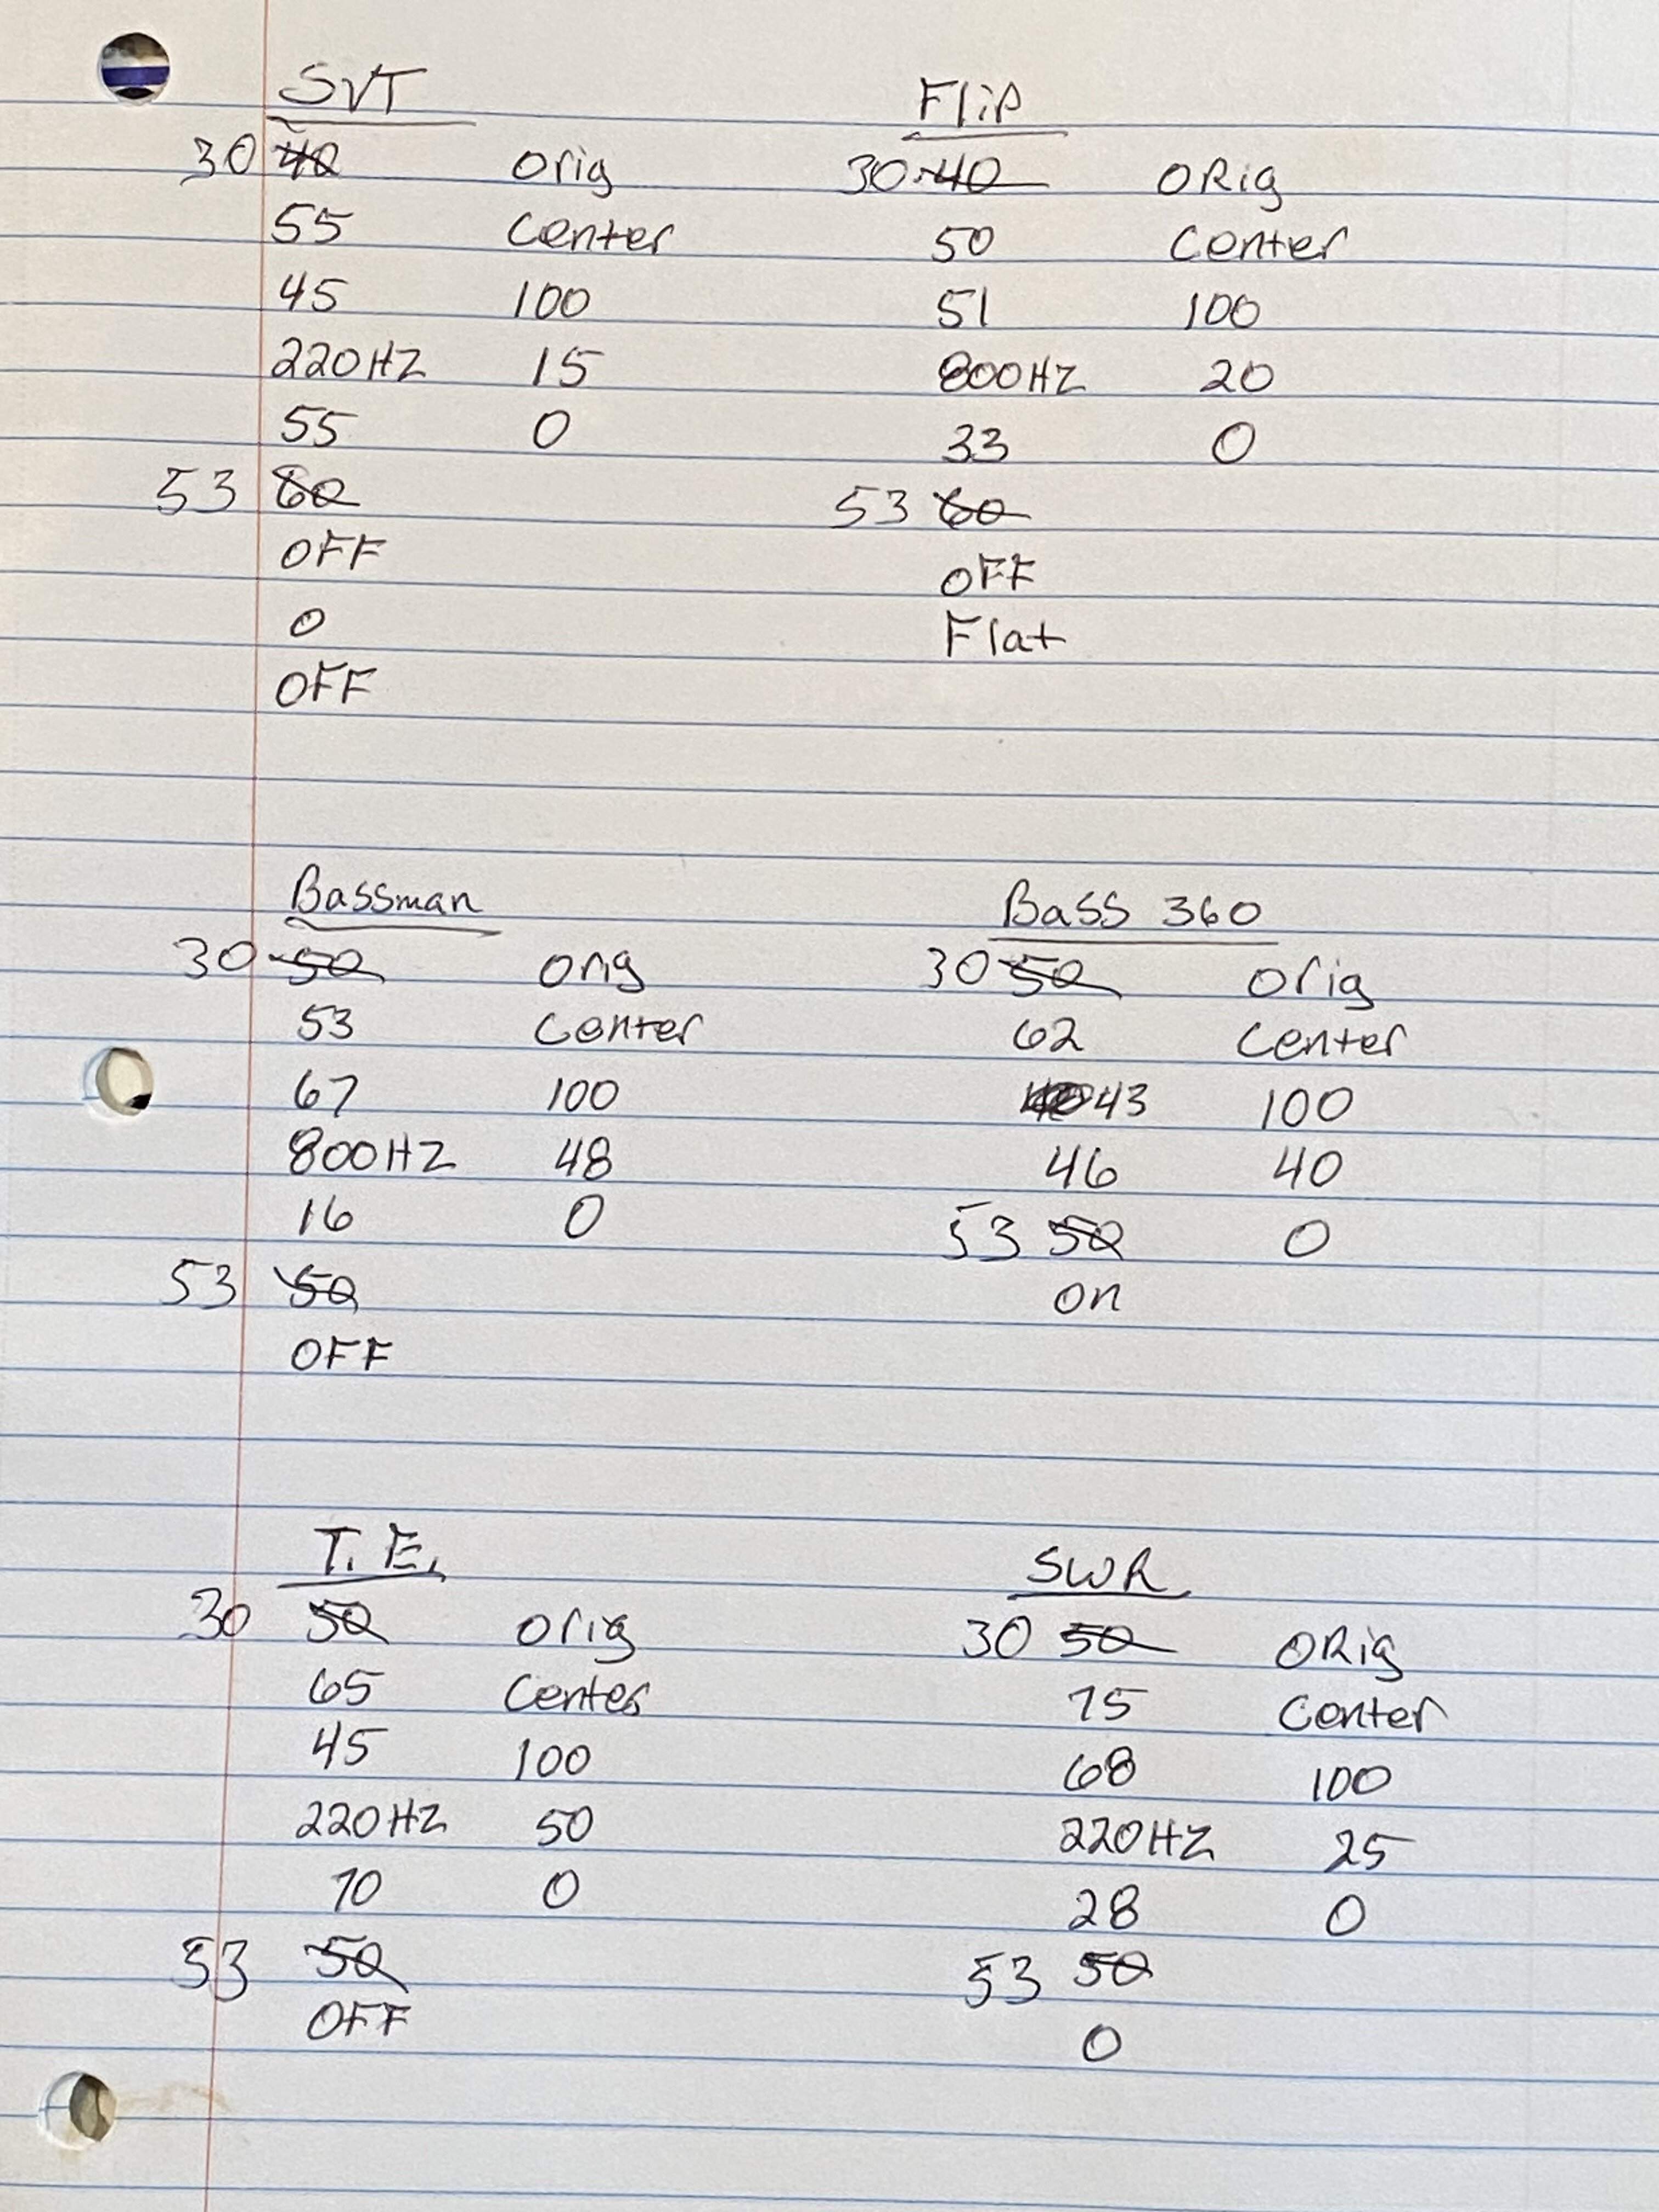 SVT
30 40 orig
55 Center
45 100
220HZ 15
55 0
53 60
OFF
0
OFF
FliP
30 40 ORig
50 Center
51 100
800HZ 20
33 0
53 60
OFF
Flat
Bassman
30 50 orig
53 Center
67 100
800HZ 48
16 0
53 50
OFF
Bass 360
30 50 orig
62 Center
43 100
46 40
53 50 0
on
T.E.
30 50 orig
65 Center
45 100
220HZ 50
70 0
53 50
OFF
SWR
30 50 ORig
75 Center
68 100
220HZ 25
28 0
53 50
0